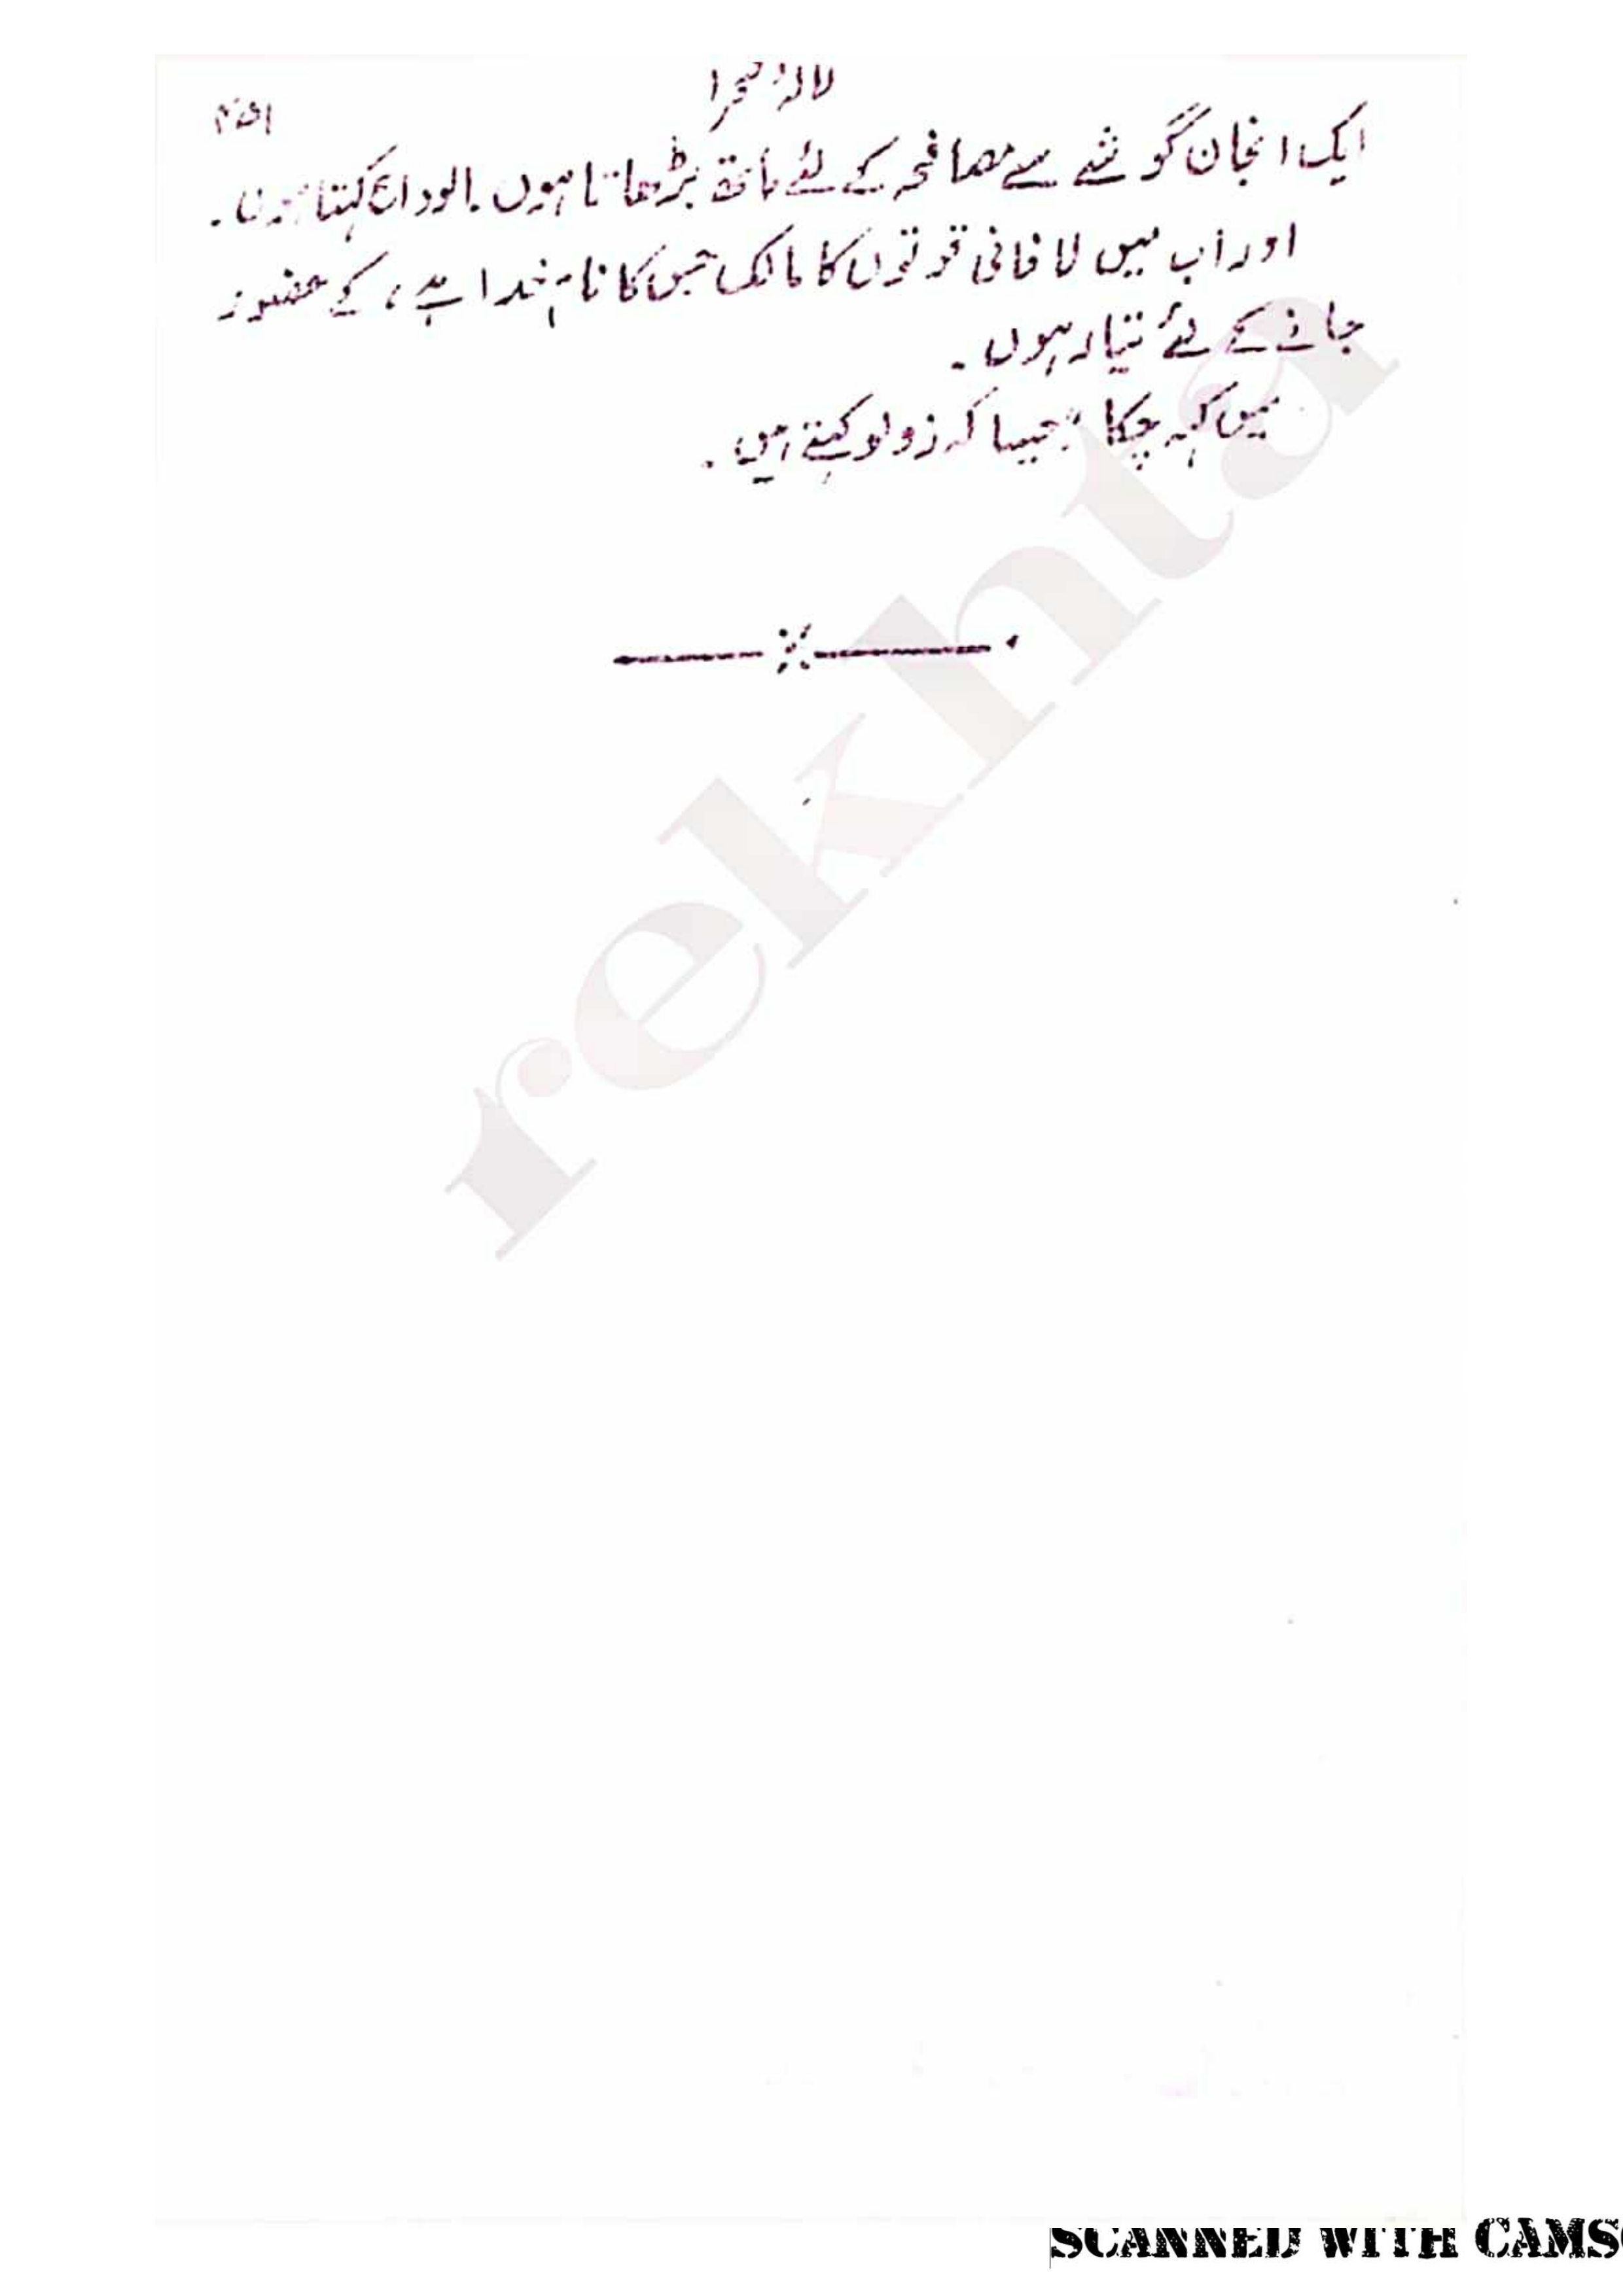 لالۂ صحرا
۴۵۱
ایک انجان گوشے سے مصافحہ کے لئے ہاتھ بڑھاتا ہوں۔ الوداع کہتا ہوں۔
اور اب میں لا فانی قوتوں کا مالک جس کا نام خدا ہے، کے حضور
جانے کے لئے تیار ہوں۔
میں کہہ چکا جیسا کہ زولو کہتے ہیں۔
rekhta
SCANNED WITH CAMS